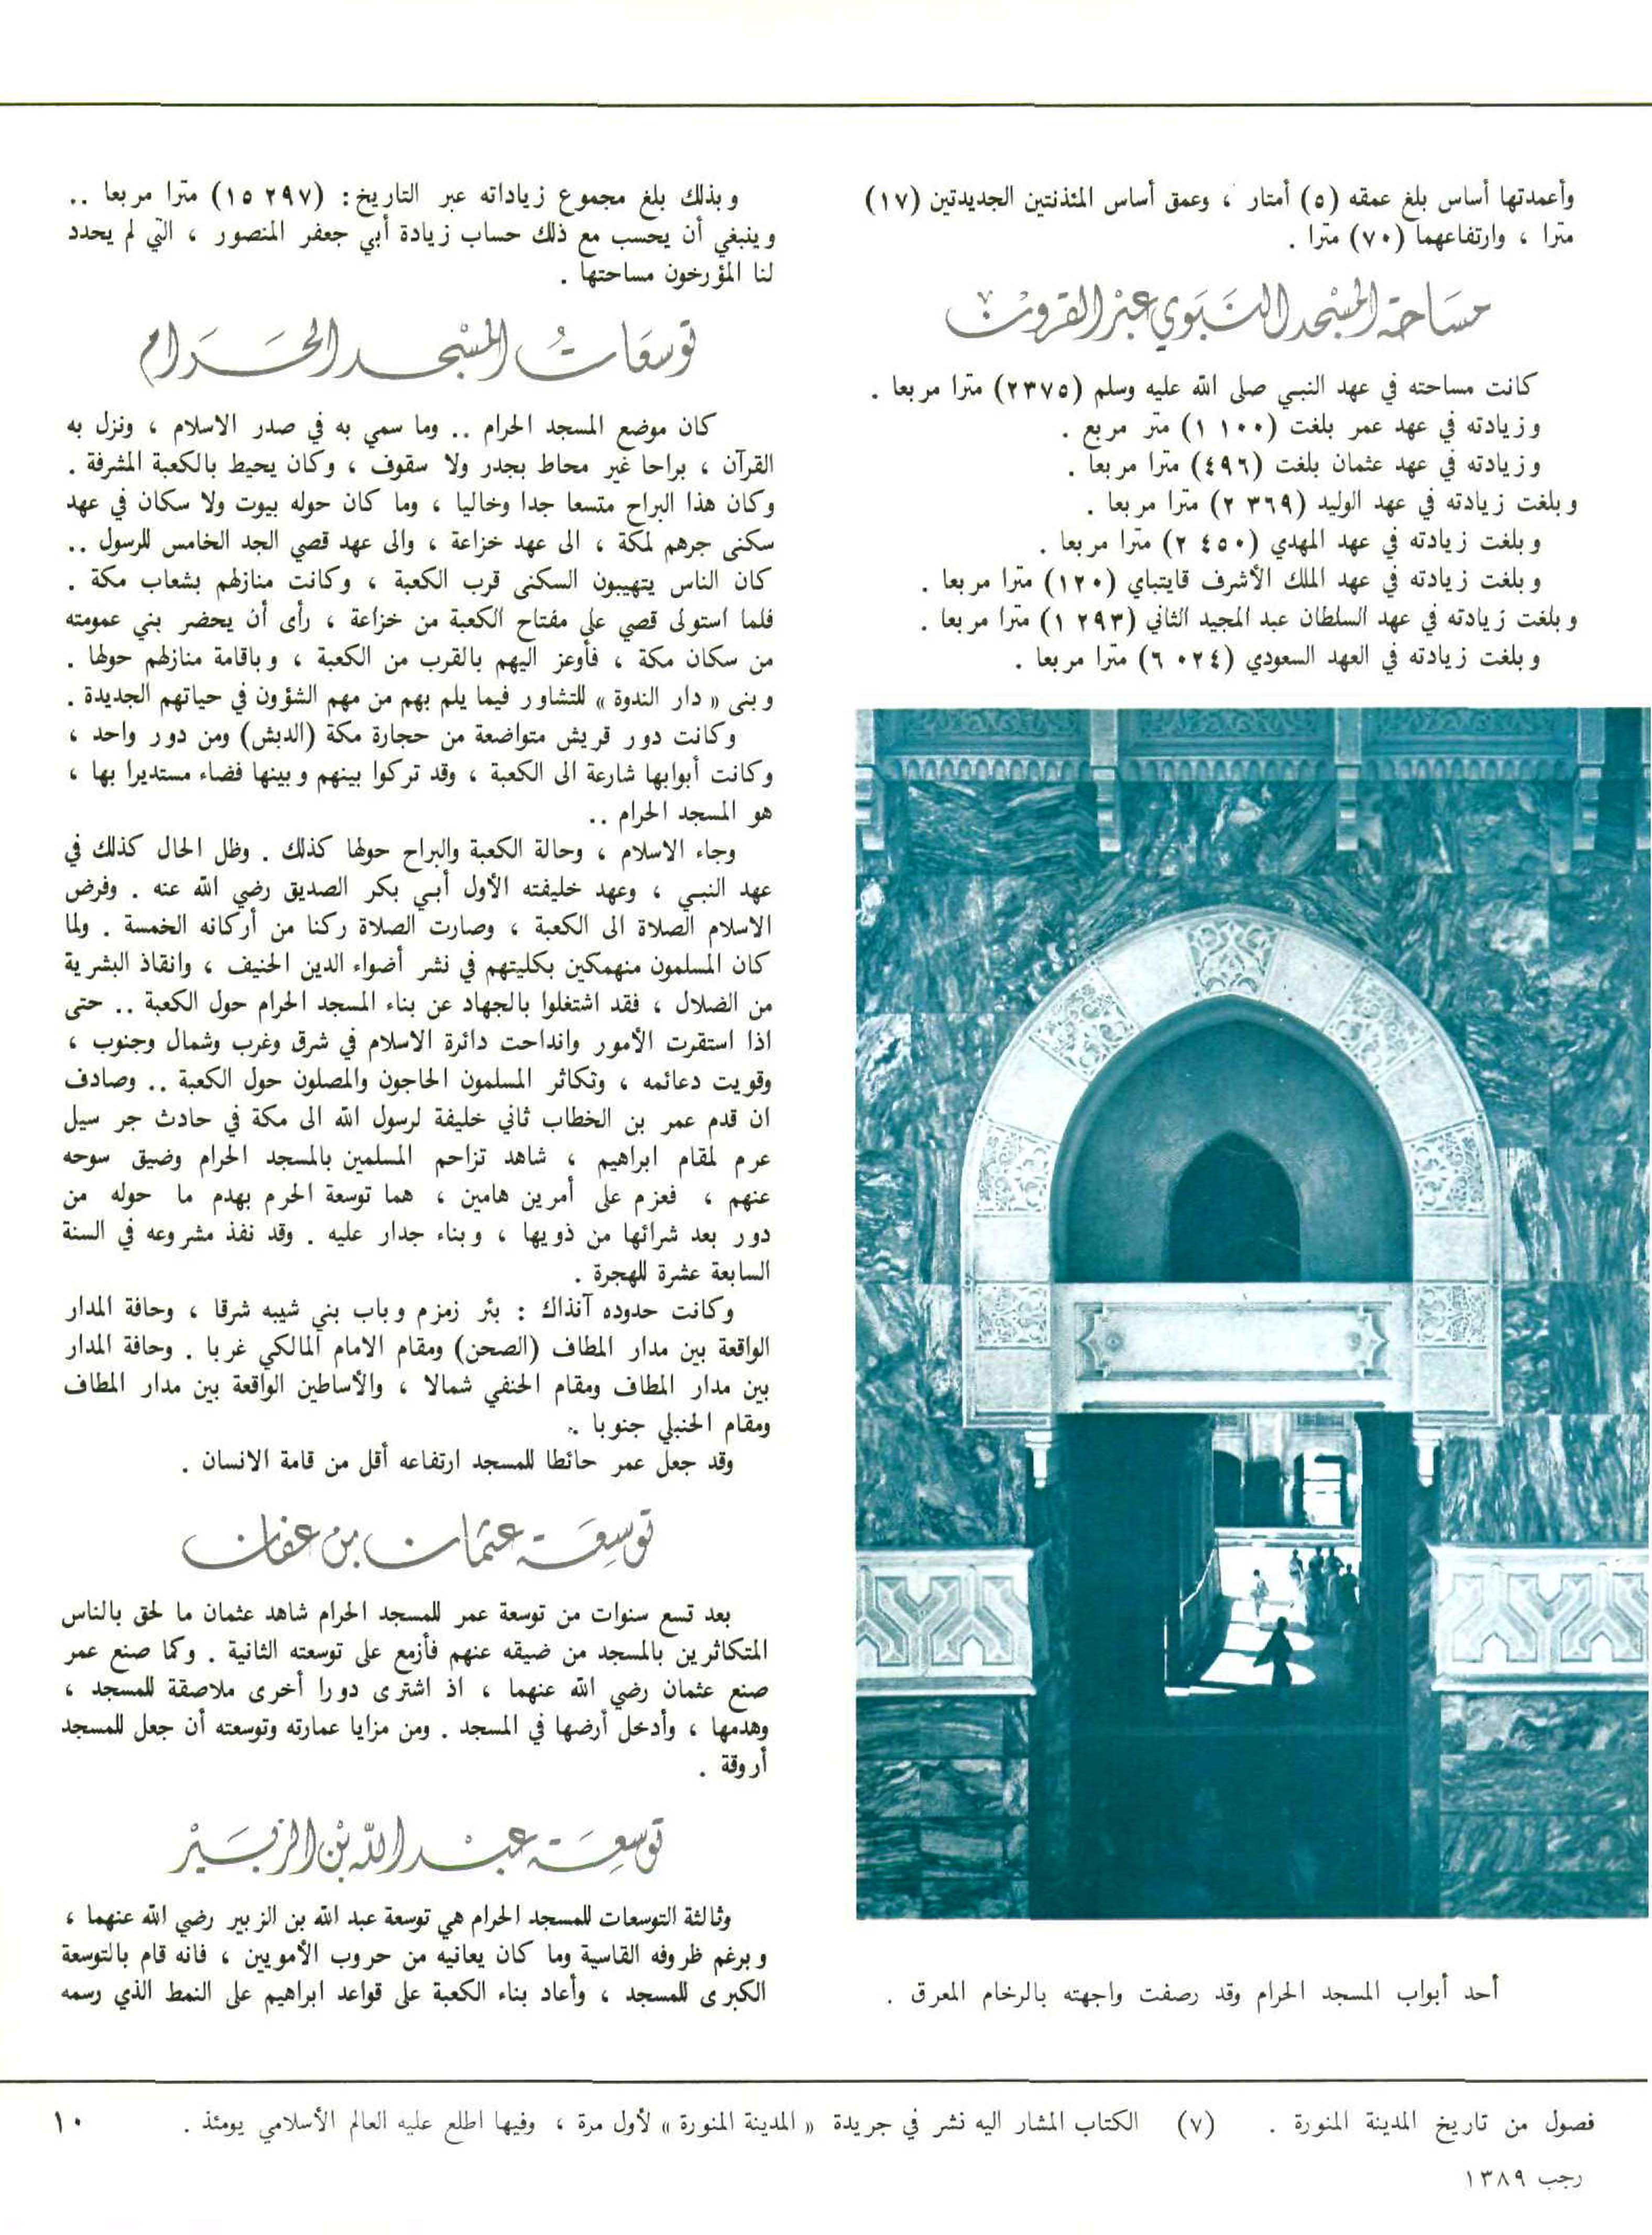 وأعمدتها أساس بلغ عمقه (٥) أمتار ، وعمق أساس المئذنتين الجديدتين (١٧)
مترا ، وارتفاعهما (٧٠) مترا .
مساحة المسجد النبوي عبر القرون
كانت مساحته في عهد النبي صلى الله عليه وسلم (٢٣٧٥) مترا مربعا .
وزيادته في عهد عمر بلغت (١١٠٠) متر مربع .
وزيادته في عهد عثمان بلغت (٤٩٦) مترا مربعا .
وبلغت زيادته في عهد الوليد (٢٣٦٩) مترا مربعا .
وبلغت زيادته في عهد المهدي (٢٤٥٠) مترا مربعا .
وبلغت زيادته في عهد الملك الأشرف قايتباي (١٢٠) مترا مربعا .
وبلغت زيادته في عهد السلطان عبد المجيد الثاني (١٢٩٣) مترا مربعا .
وبلغت زيادته في العهد السعودي (٦٠٢٤) مترا مربعا .
أحد أبواب المسجد الحرام وقد رصفت واجهته بالرخام المعرق .
وبذلك بلغ مجموع زياداته عبر التاريخ: (١٥٢٩٧) مترا مربعا ..
وينبغي أن يحسب مع ذلك حساب زيادة أبي جعفر المنصور ، التي لم يحدد
لنا المؤرخون مساحتها .
توسعات المسجد الحرام
كان موضع المسجد الحرام .. وما سمي به في صدر الاسلام ، ونزل به
القرآن ، براحا غير محاط بجدر ولا سقوف ، وكان يحيط بالكعبة المشرفة .
وكان هذا البراح متسعا جدا وخاليا ، وما كان حوله بيوت ولا سكان في عهد
سكنى جرهم لمكة ، الى عهد خزاعة ، والى عهد قصي الجد الخامس للرسول ..
كان الناس يتهيبون السكنى قرب الكعبة ، وكانت منازلهم بشعاب مكة .
فلما استولى قصي على مفتاح الكعبة من خزاعة ، رأى أن يحضر بني عمومته
من سكان مكة ، فأوعز اليهم بالقرب من الكعبة ، وباقامة منازلهم حولها .
وبنى « دار الندوة » للتشاور فيما يلم بهم من مهم الشؤون في حياتهم الجديدة .
وكانت دور قريش متواضعة من حجارة مكة (الدبش) ومن دور واحد ،
وكانت أبوابها شارعة الى الكعبة ، وقد تركوا بينهم وبينها فضاء مستديرا بها ،
هو المسجد الحرام ..
وجاء الاسلام ، وحالة الكعبة والبراح حولها كذلك . وظل الحال كذلك في
عهد النبي ، وعهد خليفته الأول أبي بكر الصديق رضي الله عنه . وفرض
الاسلام الصلاة الى الكعبة ، وصارت الصلاة ركنا من أركانه الخمسة . ولما
كان المسلمون منهمكين بكليتهم في نشر أضواء الدين الحنيف ، وانقاذ البشرية
من الضلال ، فقد اشتغلوا بالجهاد عن بناء المسجد الحرام حول الكعبة .. حتى
اذا استقرت الأمور وانداحت دائرة الاسلام في شرق وغرب وشمال وجنوب ،
وقويت دعائمه ، وتكاثر المسلمون الحاجون والمصلون حول الكعبة .. وصادف
ان قدم عمر بن الخطاب ثاني خليفة لرسول الله الى مكة في حادث جر سيل
عرم لمقام ابراهيم ، شاهد تزاحم المسلمين بالمسجد الحرام وضيق سوحه
عنهم ، فعزم على أمرين هامين ، هما توسعة الحرم بهدم ما حوله من
دور بعد شرائها من ذويها ، وبناء جدار عليه . وقد نفذ مشروعه في السنة
السابعة عشرة للهجرة .
وكانت حدوده آنذاك : بئر زمزم وباب بني شيبه شرقا ، وحافة المدار
الواقعة بين مدار المطاف (الصحن) ومقام الامام المالكي غربا . وحافة المدار
بين مدار المطاف ومقام الحنفي شمالا ، والأساطين الواقعة بين مدار المطاف
ومقام الحنبلي جنوبا .
وقد جعل عمر حائطا للمسجد ارتفاعه أقل من قامة الانسان .
توسعة عثمان بن عفان
بعد تسع سنوات من توسعة عمر للمسجد الحرام شاهد عثمان ما لحق بالناس
المتكاثرين بالمسجد من ضيقه عنهم فأزمع على توسعته الثانية . وكما صنع عمر
صنع عثمان رضي الله عنهما ، اذ اشترى دورا أخرى ملاصقة للمسجد ،
وهدمها ، وأدخل أرضها في المسجد . ومن مزايا عمارته وتوسعته أن جعل للمسجد
أروقة .
توسعة عبد الله بن الزبير
وثالثة التوسعات للمسجد الحرام هي توسعة عبد الله بن الزبير رضي الله عنهما ،
وبرغم ظروفه القاسية وما كان يعانيه من حروب الأمويين ، فانه قام بالتوسعة
الكبرى للمسجد ، وأعاد بناء الكعبة على قواعد ابراهيم على النمط الذي رسمه
فصول من تاريخ المدينة المنورة . (٧) الكتاب المشار اليه نشر في جريدة « المدينة المنورة » لأول مرة ، وفيها اطلع عليه العالم الأسلامي يومئذ . ١٠
رجب ١٣٨٩